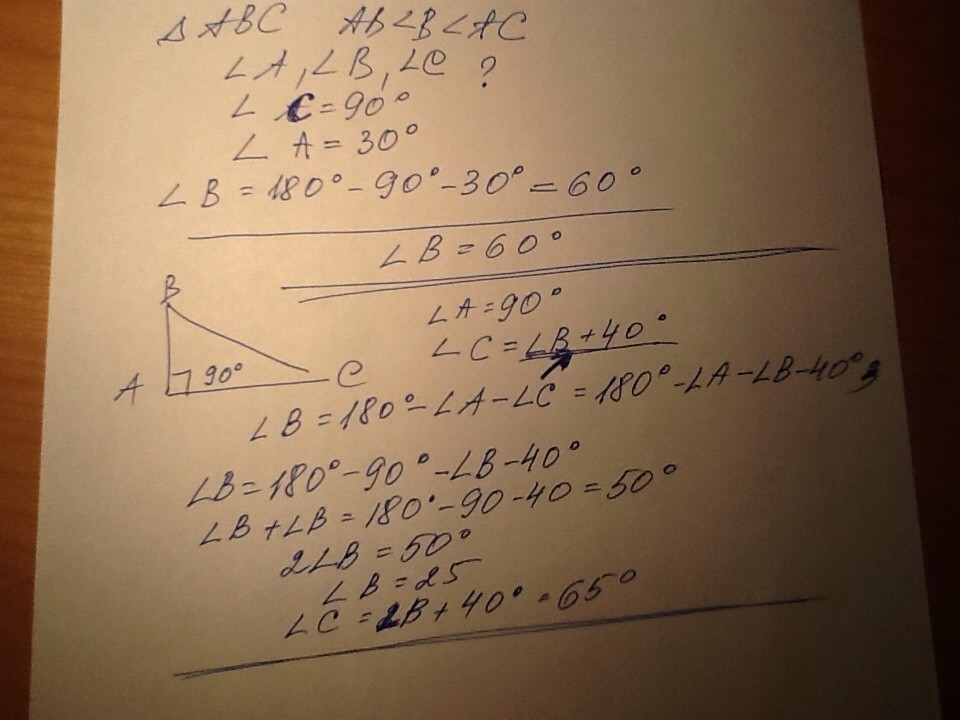 Δ ABC AB<B<AC
∠A, ∠B, ∠C ?
∠ C = 90°
∠ A = 30°
∠B = 180° - 90° - 30° = 60°
∠B = 60°
B
A 90° C
∠A = 90°
∠C = ∠B + 40°
∠B = 180° - ∠A - ∠C = 180° - ∠A - ∠B - 40°
∠B = 180° - 90° - ∠B - 40°
∠B + ∠B = 180° - 90 - 40 = 50°
2∠B = 50°
∠B = 25
∠C = ∠B + 40° = 65°